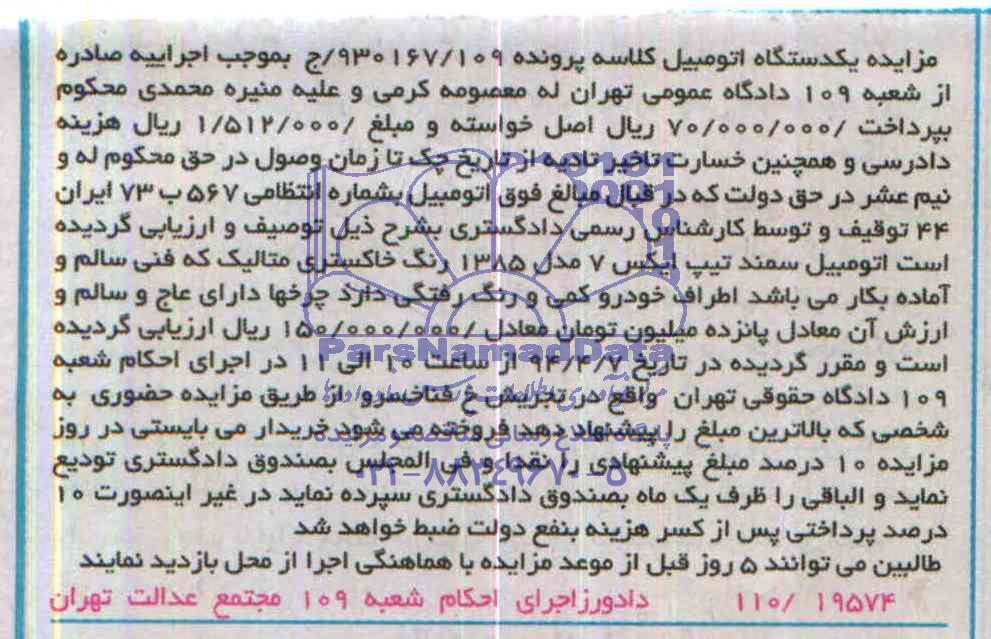 مزایده یکدستگاه اتومبیل کلاسه پرونده ۹۳۰۱۶۷/۱۰۹/ج بموجب اجراییه صادره
از شعبه ۱۰۹ دادگاه عمومی تهران له معصومه کرمی و علیه منیره محمدی محکوم
بپرداخت /۷۰/۰۰۰/۰۰۰ ریال اصل خواسته و مبلغ /۱/۵۱۲/۰۰۰ ریال هزینه
دادرسی و همچنین خسارت تاخیر تادیه از تاریخ چک تا زمان وصول در حق محکوم له و
نیم عشر در حق دولت که در قبال مبالغ فوق اتومبیل بشماره انتظامی ۵۶۷ ب ۷۳ ایران
۴۴ توقیف و توسط کارشناس رسمی دادگستری بشرح ذیل توصیف و ارزیابی گردیده
است اتومبیل سمند تیپ ایکس ۷ مدل ۱۳۸۵ رنگ خاکستری متالیک که فنی سالم و
آماده بکار می باشد اطراف خودرو کمی و رنگ رفتگی دارد چرخها دارای عاج و سالم و
ارزش آن معادل پانزده میلیون تومان معادل /۱۵۰/۰۰۰/۰۰۰ ریال ارزیابی گردیده
است و مقرر گردیده در تاریخ ۹۴/۴/۷ از ساعت ۱۰ الی ۱۱ در اجرای احکام شعبه
۱۰۹ دادگاه حقوقی تهران واقع در تجریش خ فناخسرو از طریق مزایده حضوری به
شخصی که بالاترین مبلغ را پیشنهاد دهد فروخته می شود خریدار می بایستی در روز
مزایده ۱۰ درصد مبلغ پیشنهادی را نقدا و فی المجلس بصندوق دادگستری تودیع
نماید و الباقی را ظرف یک ماه بصندوق دادگستری سپرده نماید در غیر اینصورت ۱۰
درصد پرداختی پس از کسر هزینه بنفع دولت ضبط خواهد شد
طالبین می توانند ۵ روز قبل از موعد مزایده با هماهنگی اجرا از محل بازدید نمایند
۱۱۰/ ۱۹۵۷۴ دادورز اجرای احکام شعبه ۱۰۹ مجتمع عدالت تهران
ParsNamadData
پایگاه اطلاع رسانی مناقصه و مزایده
۰۲۱-۸۸۳۴۹۶۷۰-۵